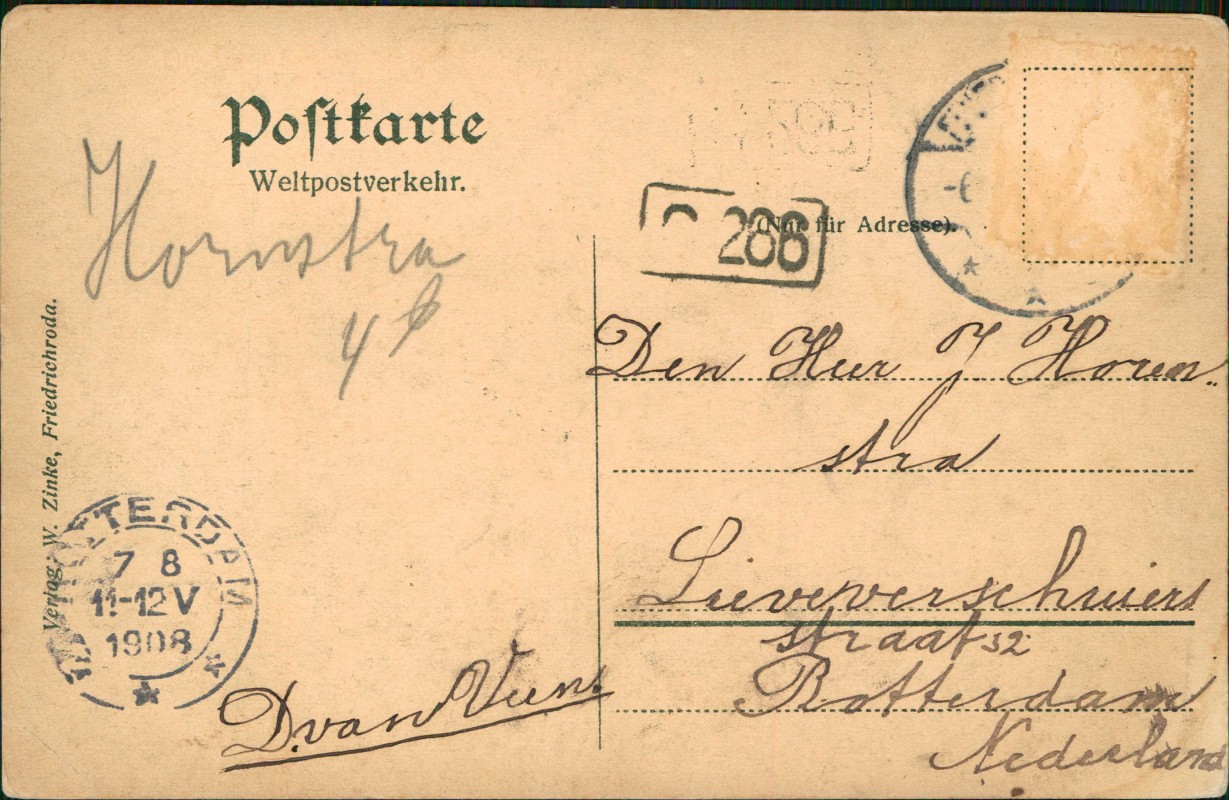 Postkarte
Weltpostverkehr.
Hornstra
4
286
(Nur für Adresse).
Den Heer J Horen..
stra
Lieveverschuiers
straat 32
Rotterdam
Nederland
D. van Veen
Verlag: W. Zinke, Friedrichroda.
ROTTERDAM
7 8
11-12 V
1908